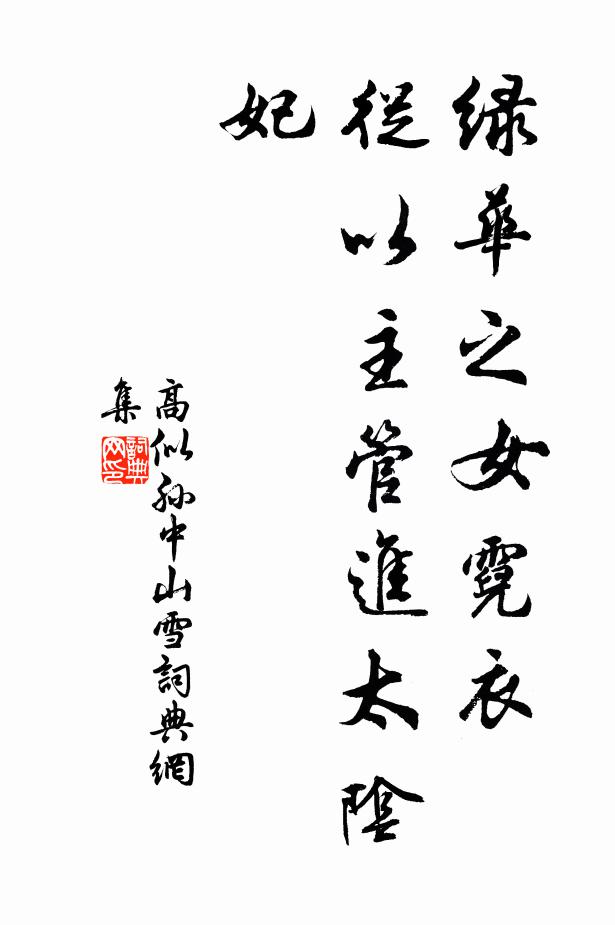 緑華之女霓衣
從以主管進太陰
妃
高似孫中山雪詞典網
集
詞典
网印